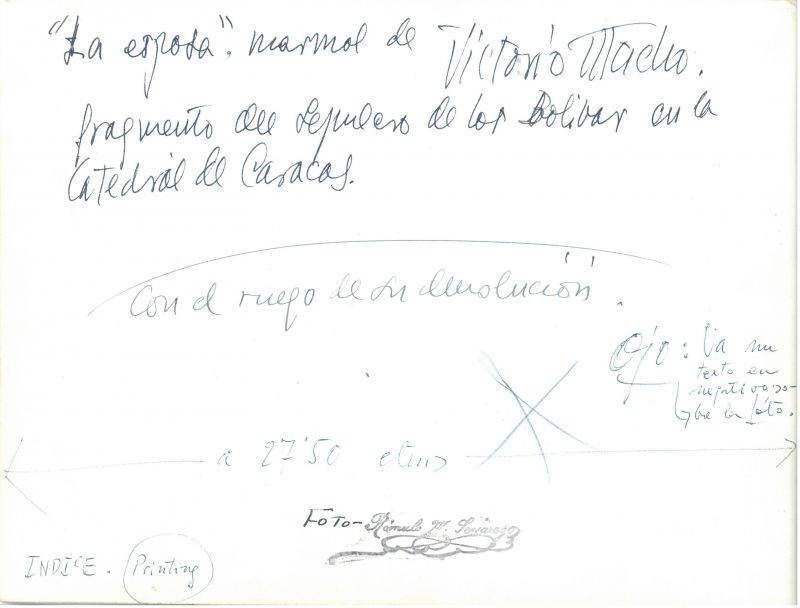 "La esposa". marmol de Victorio Macho.
fragmento del Sepulcro de los Bolivar en la
Catedral de Caracas.
Con el ruego de su devolución.
Ojo: Va un
texto en
negativo so-
bre la foto.
a 27'50 ctms
FOTO - Rómulo M.
INDICE. Printing